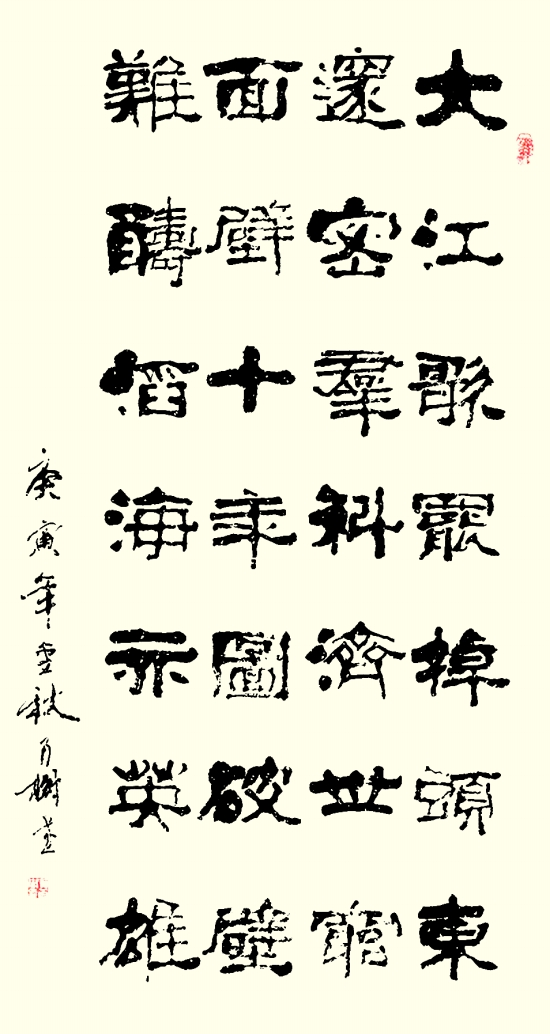 大江歌罷掉頭東
邃密羣科濟世窮
面壁十年圖破壁
難醻蹈海亦英雄
庚寅年孟秋月樹